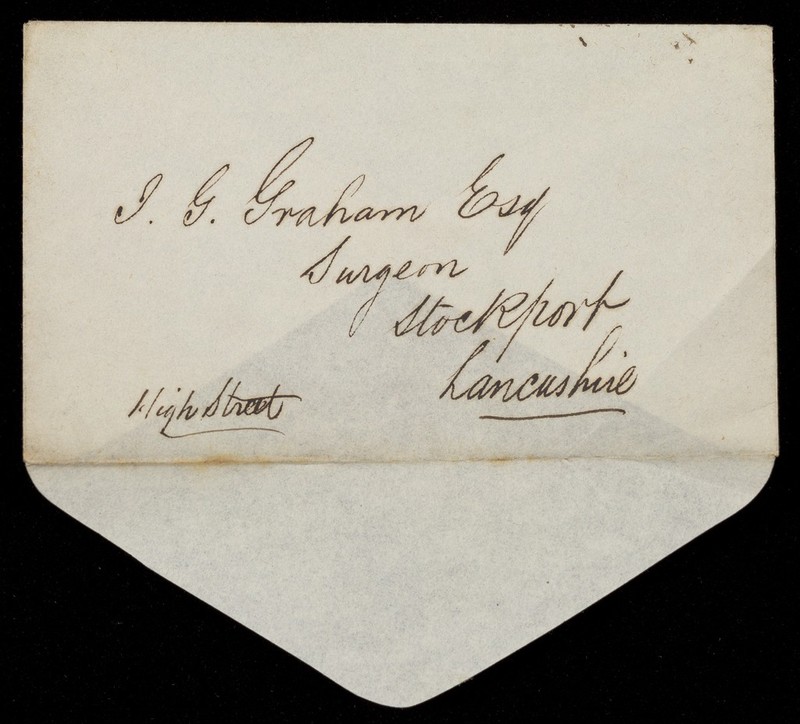 J. G. Graham Esq
Surgeon
Stockport
Lancashire
High Street